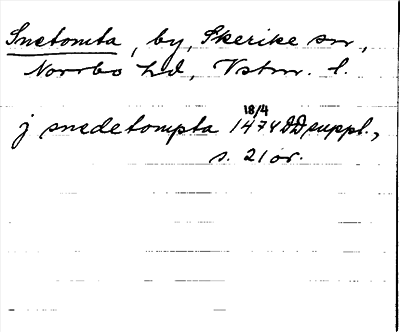 Snetomta, by, Skerike sn,
Norrbo hd, Vstm. l.
18/4
j snedetompta 1474 DD suppl.,
s. 21 or.